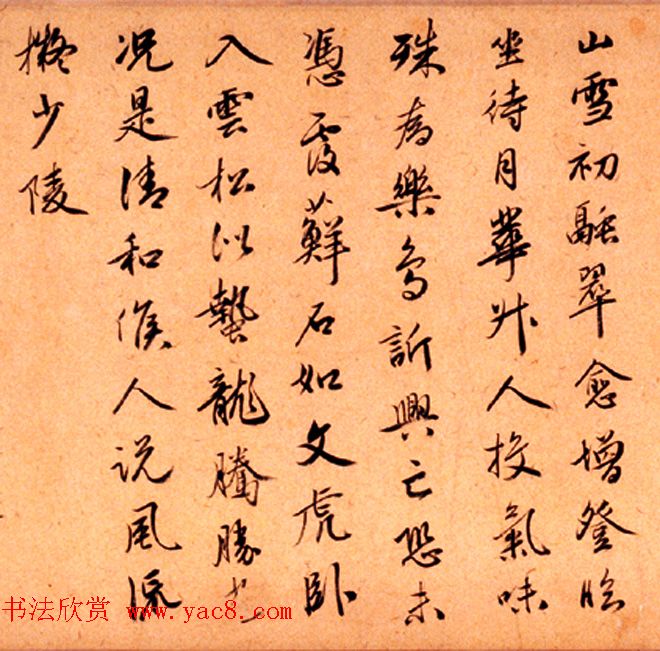 山雪初融翠愈增登臨
坐待月華升人投氣味
殊為樂鳥訴興亡恐未
憑覆蘚石如文虎臥
入雲松似蟄龍騰勝
況是清和候人说風流
擬少陵
书法欣赏 www.yac8.com